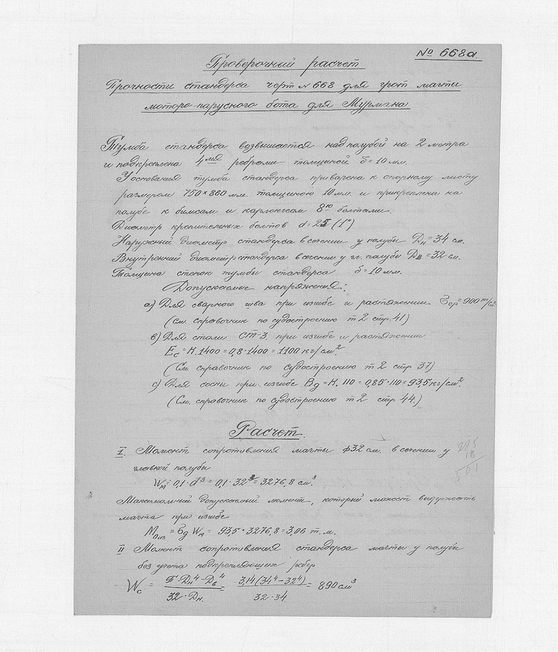 № 668а
Проверочный расчет
Прочности стандерса черт № 668 для грот мачты
моторо-парусного бота для Мурмана
Тумба стандерса возвышается над палубой на 2 метра
и подкреплена 4мя ребрами толщиной δ=10 мм.
У основания тумба стандерса приварена к опорному листу
размером 750×860 мм толщиною 10 мм и прикреплена на
палубе к бимсам и карленгсам 8ю болтами.
Диаметр крепительных болтов d=25 (1")
Наружный диаметр стандерса в сечении у палубы Dн=34 см.
Внутренний диаметр стандерса в сечении у палубы Dв=32 см.
Толщина стенок тумбы стандерса δ=10 мм.
Допускаемые напряжения:
а) Для сварного шва при изгибе и растяжении =900 кг/см²
(см. справочник по судостроению т 2 стр. 41)
в) Для стали СТ-3 при изгибе и растяжении
Eс=Н.1400=0,8·1400=1100 кг/см²
(См. справочник по судостроению т 2 стр 37)
с) Для сосны при изгибе Bд=Н. 110=0,85·110=93,5 кг/см²
(См. справочник по судостроению т 2 стр 44.)
Расчет.
I Момент сопротивления мачты ф 32 см. в сечении у
главной палубы
Wм=0,1·d³=0,1·32³=3276,8 см³
Максимальный допускаемый момент, который может выдержать
мачта при изгибе
Mдоп=бд Wм=93,5·3276,8=3,06 т.м.
II Момент сопротивления стандерса мачты у палубы
без учета подкрепляющих ребер
Wс = π·Dн⁴-Dв⁴ / 32·Dн = 3,14(34⁴-32⁴) / 32·34 = 890 см³